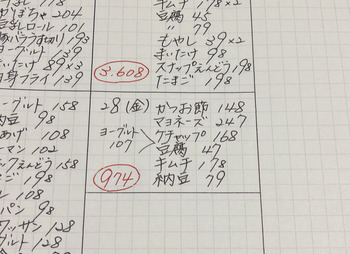 ぼちゃ 204
ロール 101
バラうす切り 193
ーグルト 139
いたけ 89×3
身フライ 139
キムチ 178×2
豆腐 45
〃 79
もやし 39×2
まいたけ 98
スナップえんどう 198
たまご 198
3.608
ーグルト 158
豆 98
あげ 108
ーマン 102
えんどう 158
まご 198
108
パン 98
ワッサン 128
グルト 128
28(金) かつお節 148
マヨネーズ 247
ヨーグルト 107
ケチャップ 168
豆腐 47
キムチ 178
納豆 79
974